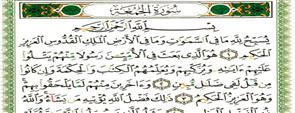 سورة الجمعة
بسم الله الرحمن الرحيم
يسبح لله ما في السموت وما في الأرض الملك القدوس العزيز
الحكيم ١ هو الذي بعث في الأميين رسولا منهم يتلوا
عليهم ءايته ويزكيهم ويعلمهم الكتب والحكمة وإن كانوا
من قبل لفي ضلل مبين ٢ وءاخرين منهم لما يلحقوا بهم
وهو العزيز الحكيم ٣ ذلك فضل الله يؤتيه من يشاء والله